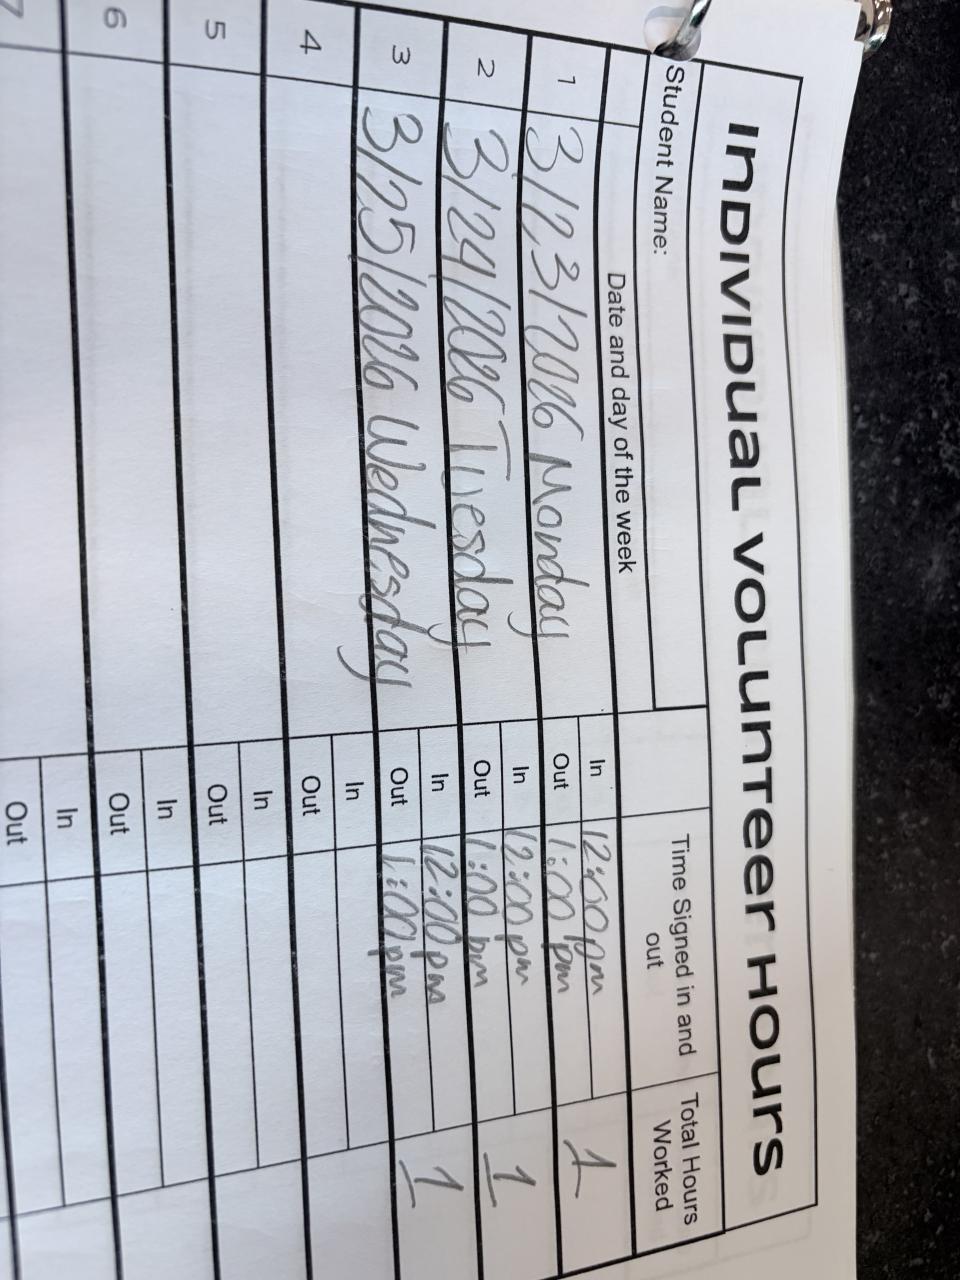 INDIVIDUAL VOLUNTEER HOURS
Student Name:
Date and day of the week
Time Signed in and out
Total Hours Worked
1 3/23/2026 Monday In 12:00pm 1
Out 1:00 pm
2 3/24/2026 Tuesday In 12:00pm 1
Out 1:00 pm
3 3/25/2026 Wednesday In 12:00pm 1
Out 1:00pm
4 In
Out
5 In
Out
6 In
Out
7 In
Out